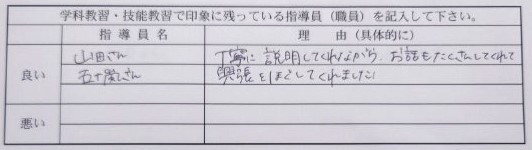 学科教習・技能教習で印象に残っている指導員（職員）を記入して下さい。
指 導 員 名
理 由（具体的に）
良い
山田さん
丁寧に説明してくれながら、お話もたくさんしてくれて
五十嵐さん
緊張をほぐしてくれました!
悪い